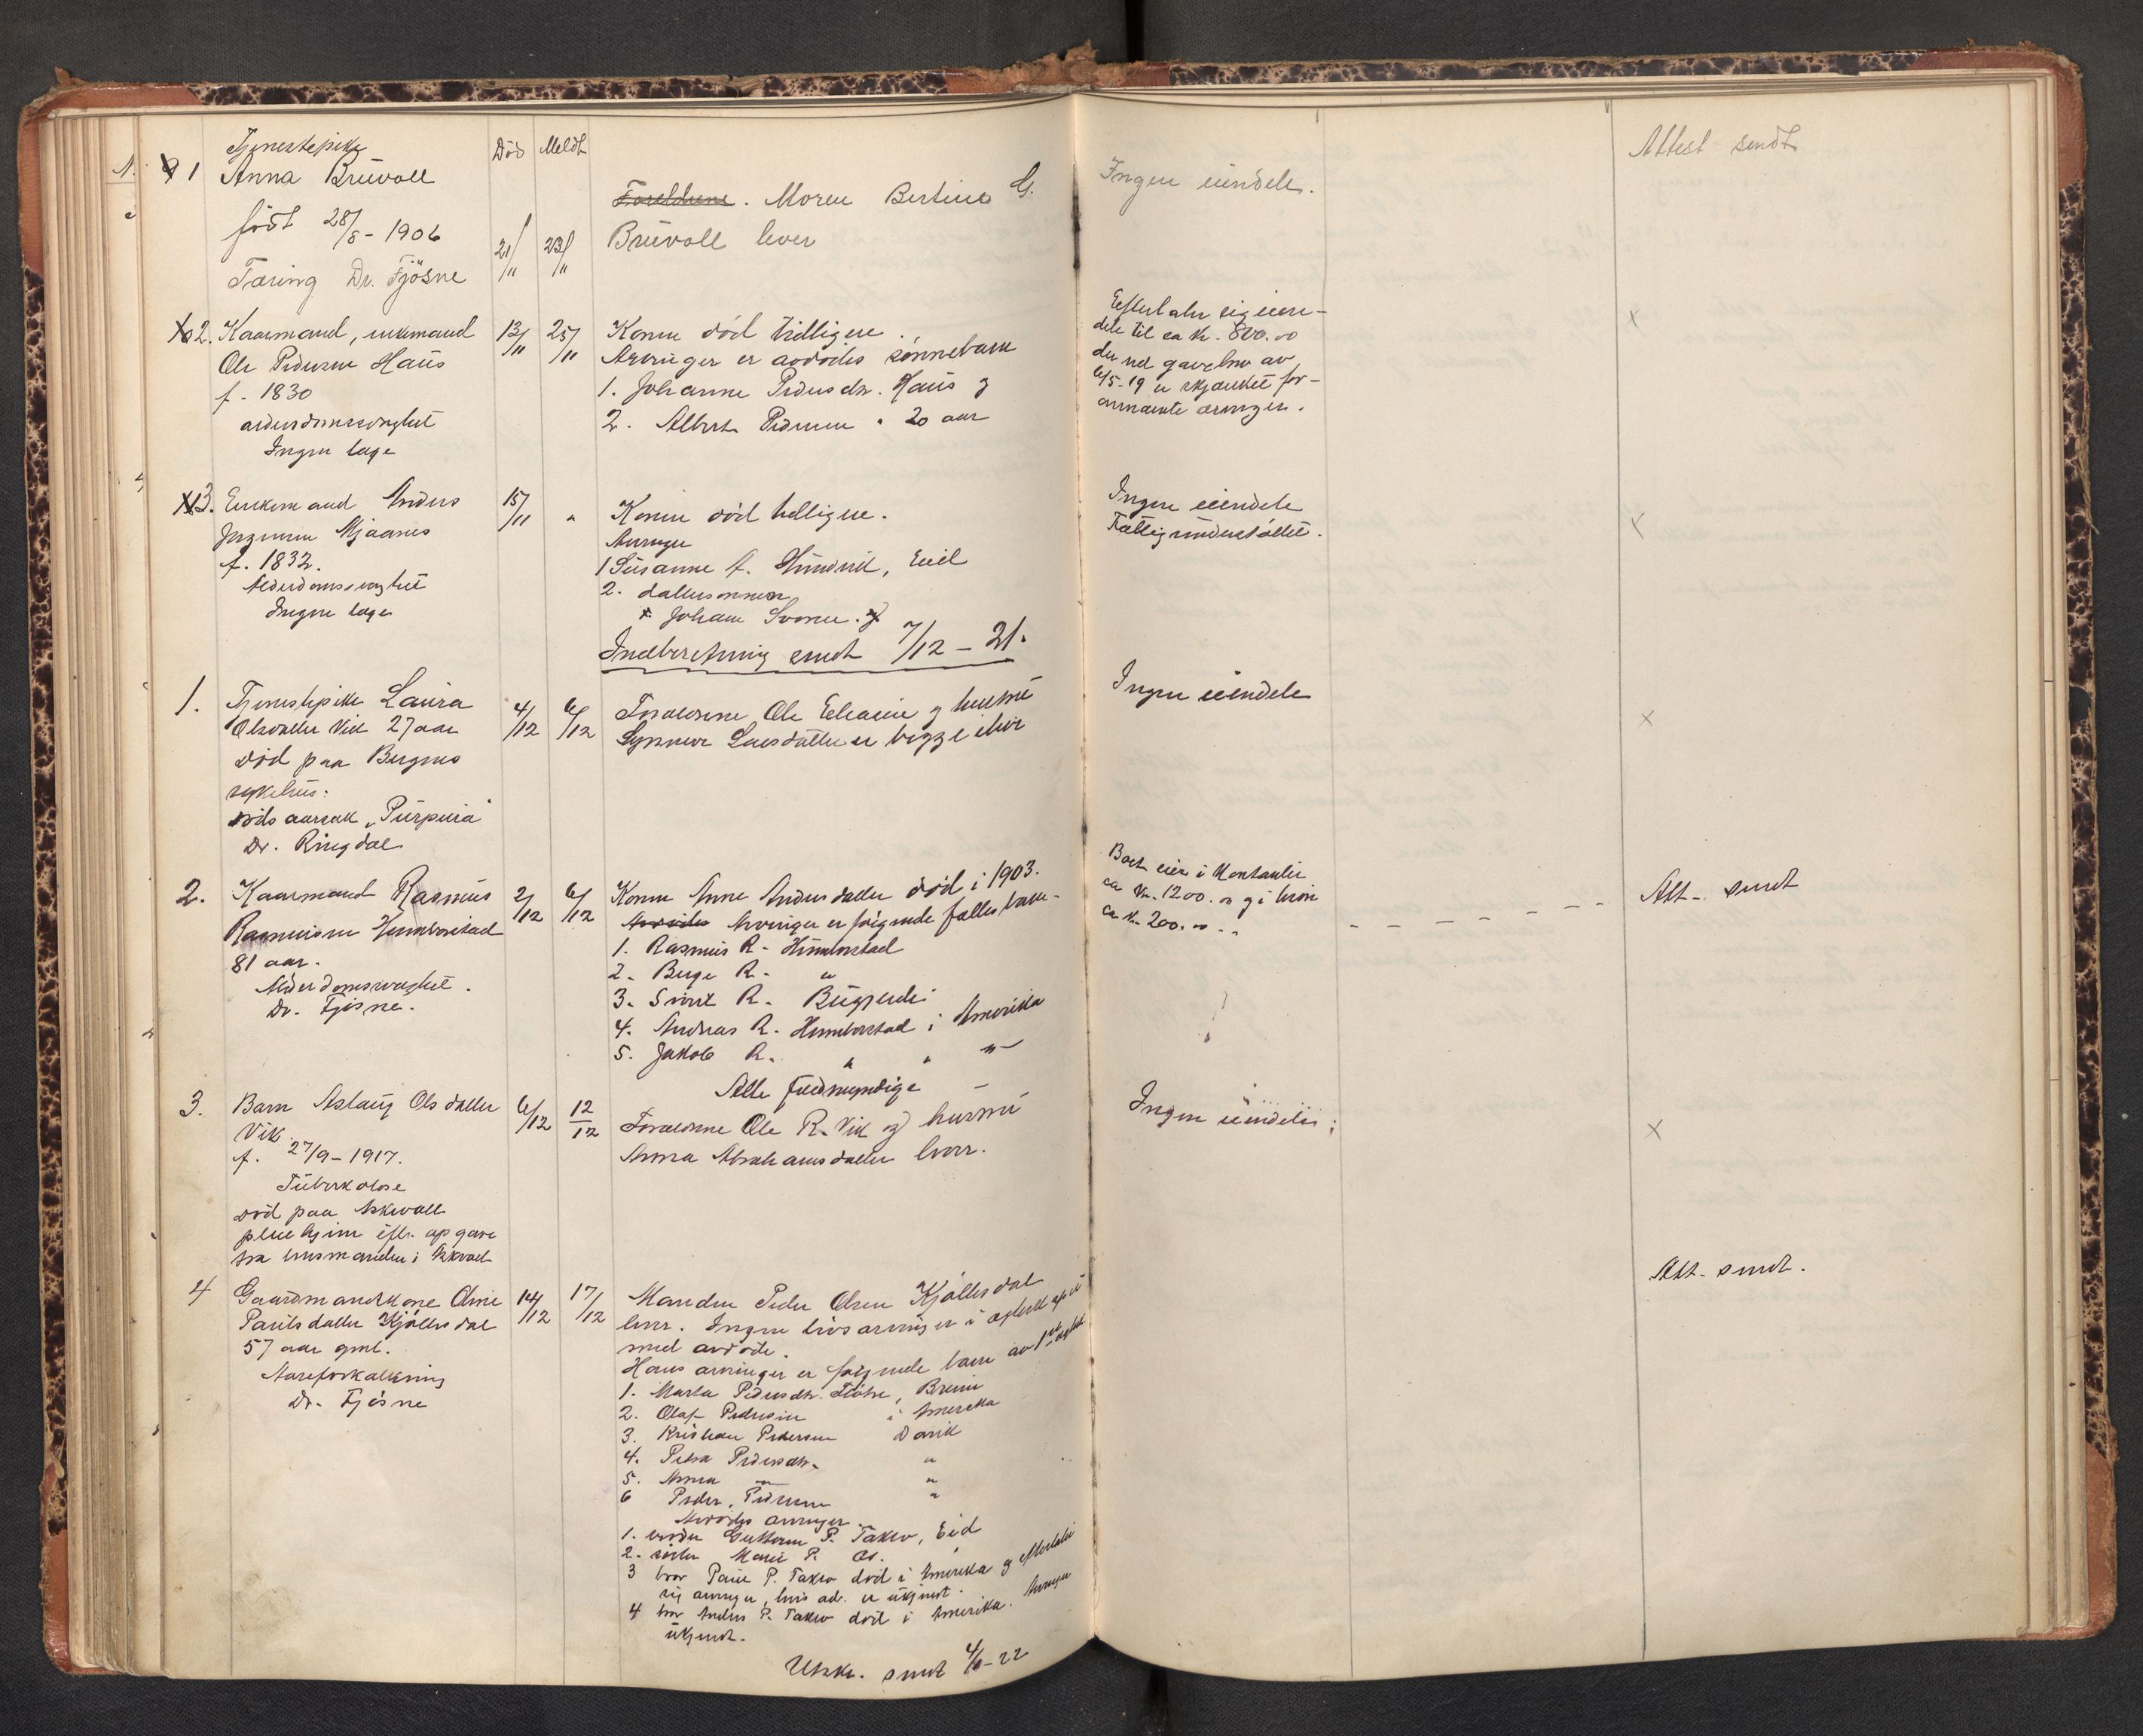 Død Meldt
1 Tjenestepike
Anna Brüvoll
født 28/8 - 1906
Tæring Dr. Fjösne
21/11 23/11
Foreldrene. Moren Bertine G.
Brüvoll lever
Ingen eiendele.
Attest sendt
2. Kaarmand, enkemand
Ole Pedersen Haüs
f. 1830
alderdomssvaghet
Ingen læge
13/11 25/11
Konen död tidligere.
Arvinger er avdödes sönnebarn
1. Johanne Pedersdtr. Haüs og
2. Albert Pedersen " 20 aar
Efterlater sig eien-
dele til ca kr. 800.00
der ved gavebrev av
6/5-19 er skjænket for-
annævnte arvinger.
x
3. Enkemand Anders
Jørgensen Mjaanes
f. 1832.
Alderdomssvaghet
Ingen læge
15/11 "
Konen död tidligere.
Arvinger
1 Süsanne A. Hündvik, Eid
2. dattersönnen
Johan Svoren.
Ingen eiendele
Fattigünderstöttet.
x
Indberetning sendt 7/12 - 21.
1. Tjenestepike Laüra
Olsdatter Vik 27 aar
död paa Bergens
sykehüs.
dödsaarsak „Pürpüra"
Dr. Ringdal
4/12 6/12
Forældrene Ole Eliasen og hustrü
Synneve Larsdatter er begge i live
Ingen eiendele
x
2. Kaarmand Rasmüs
Rasmüsen Hümborstad
81 aar.
Alderdomssvaghet.
Dr. Fjösne.
2/12 6/12
Konen Anne Andersdatter död i 1903.
Avdödes Arvinger er fölgende fællesbarn-
1. Rasmüs R. Hümborstad
2. Berge R. "
3. Sivert R.
4. Andreas R. Hümborstad i Amerika
5. Jakob R. " " "
Alle füldmyndige
Boet eier i kontanter
ca kr. 1200.00 og i
ca kr. 200.00
Att. sendt
3. Barn Aslaüg Olsdatter
Vik
f. 27/9 - 1917.
Tüberkolose
död paa Askvoll
pleiehjem efter opgave
fra lensmanden i Askvoll
6/12 12/12
Forældrene Ole R. Vik og hüstrü
Anna Abrahamsdatter lever.
Ingen eiendele
x
4 Gaardmandskone Oline
Paülsdatter Kjöllesdal
57 aar gml.
Aareforkalkning
Dr. Fjösne
14/12 17/12
Manden Peder Olsen Kjöllesdal
lever. Ingen livsarvinger i
med avdöde.
Hans arvinger er fölgende barn av 1ste
1. Marta Pedersdtr.
2. Olaf Pedersen i Amerika
3. Kristian Pedersen Davik
4. Petra Pedersdtr. "
5. Anna "
6 Peder Pedersen "
Avdödes arvinger
1. broder Güttorm P. Taklo, Eid
2. söster Marie P.
3 bror Paül P. Taklo död i Amerika og efterlater
sig arvinger, hvis adr. er ükjendt.
4 bror Anders P. Taklo död i Amerika. Arvinger
ükjendt.
Att. sendt.
Utskr. sendt 4/1-22